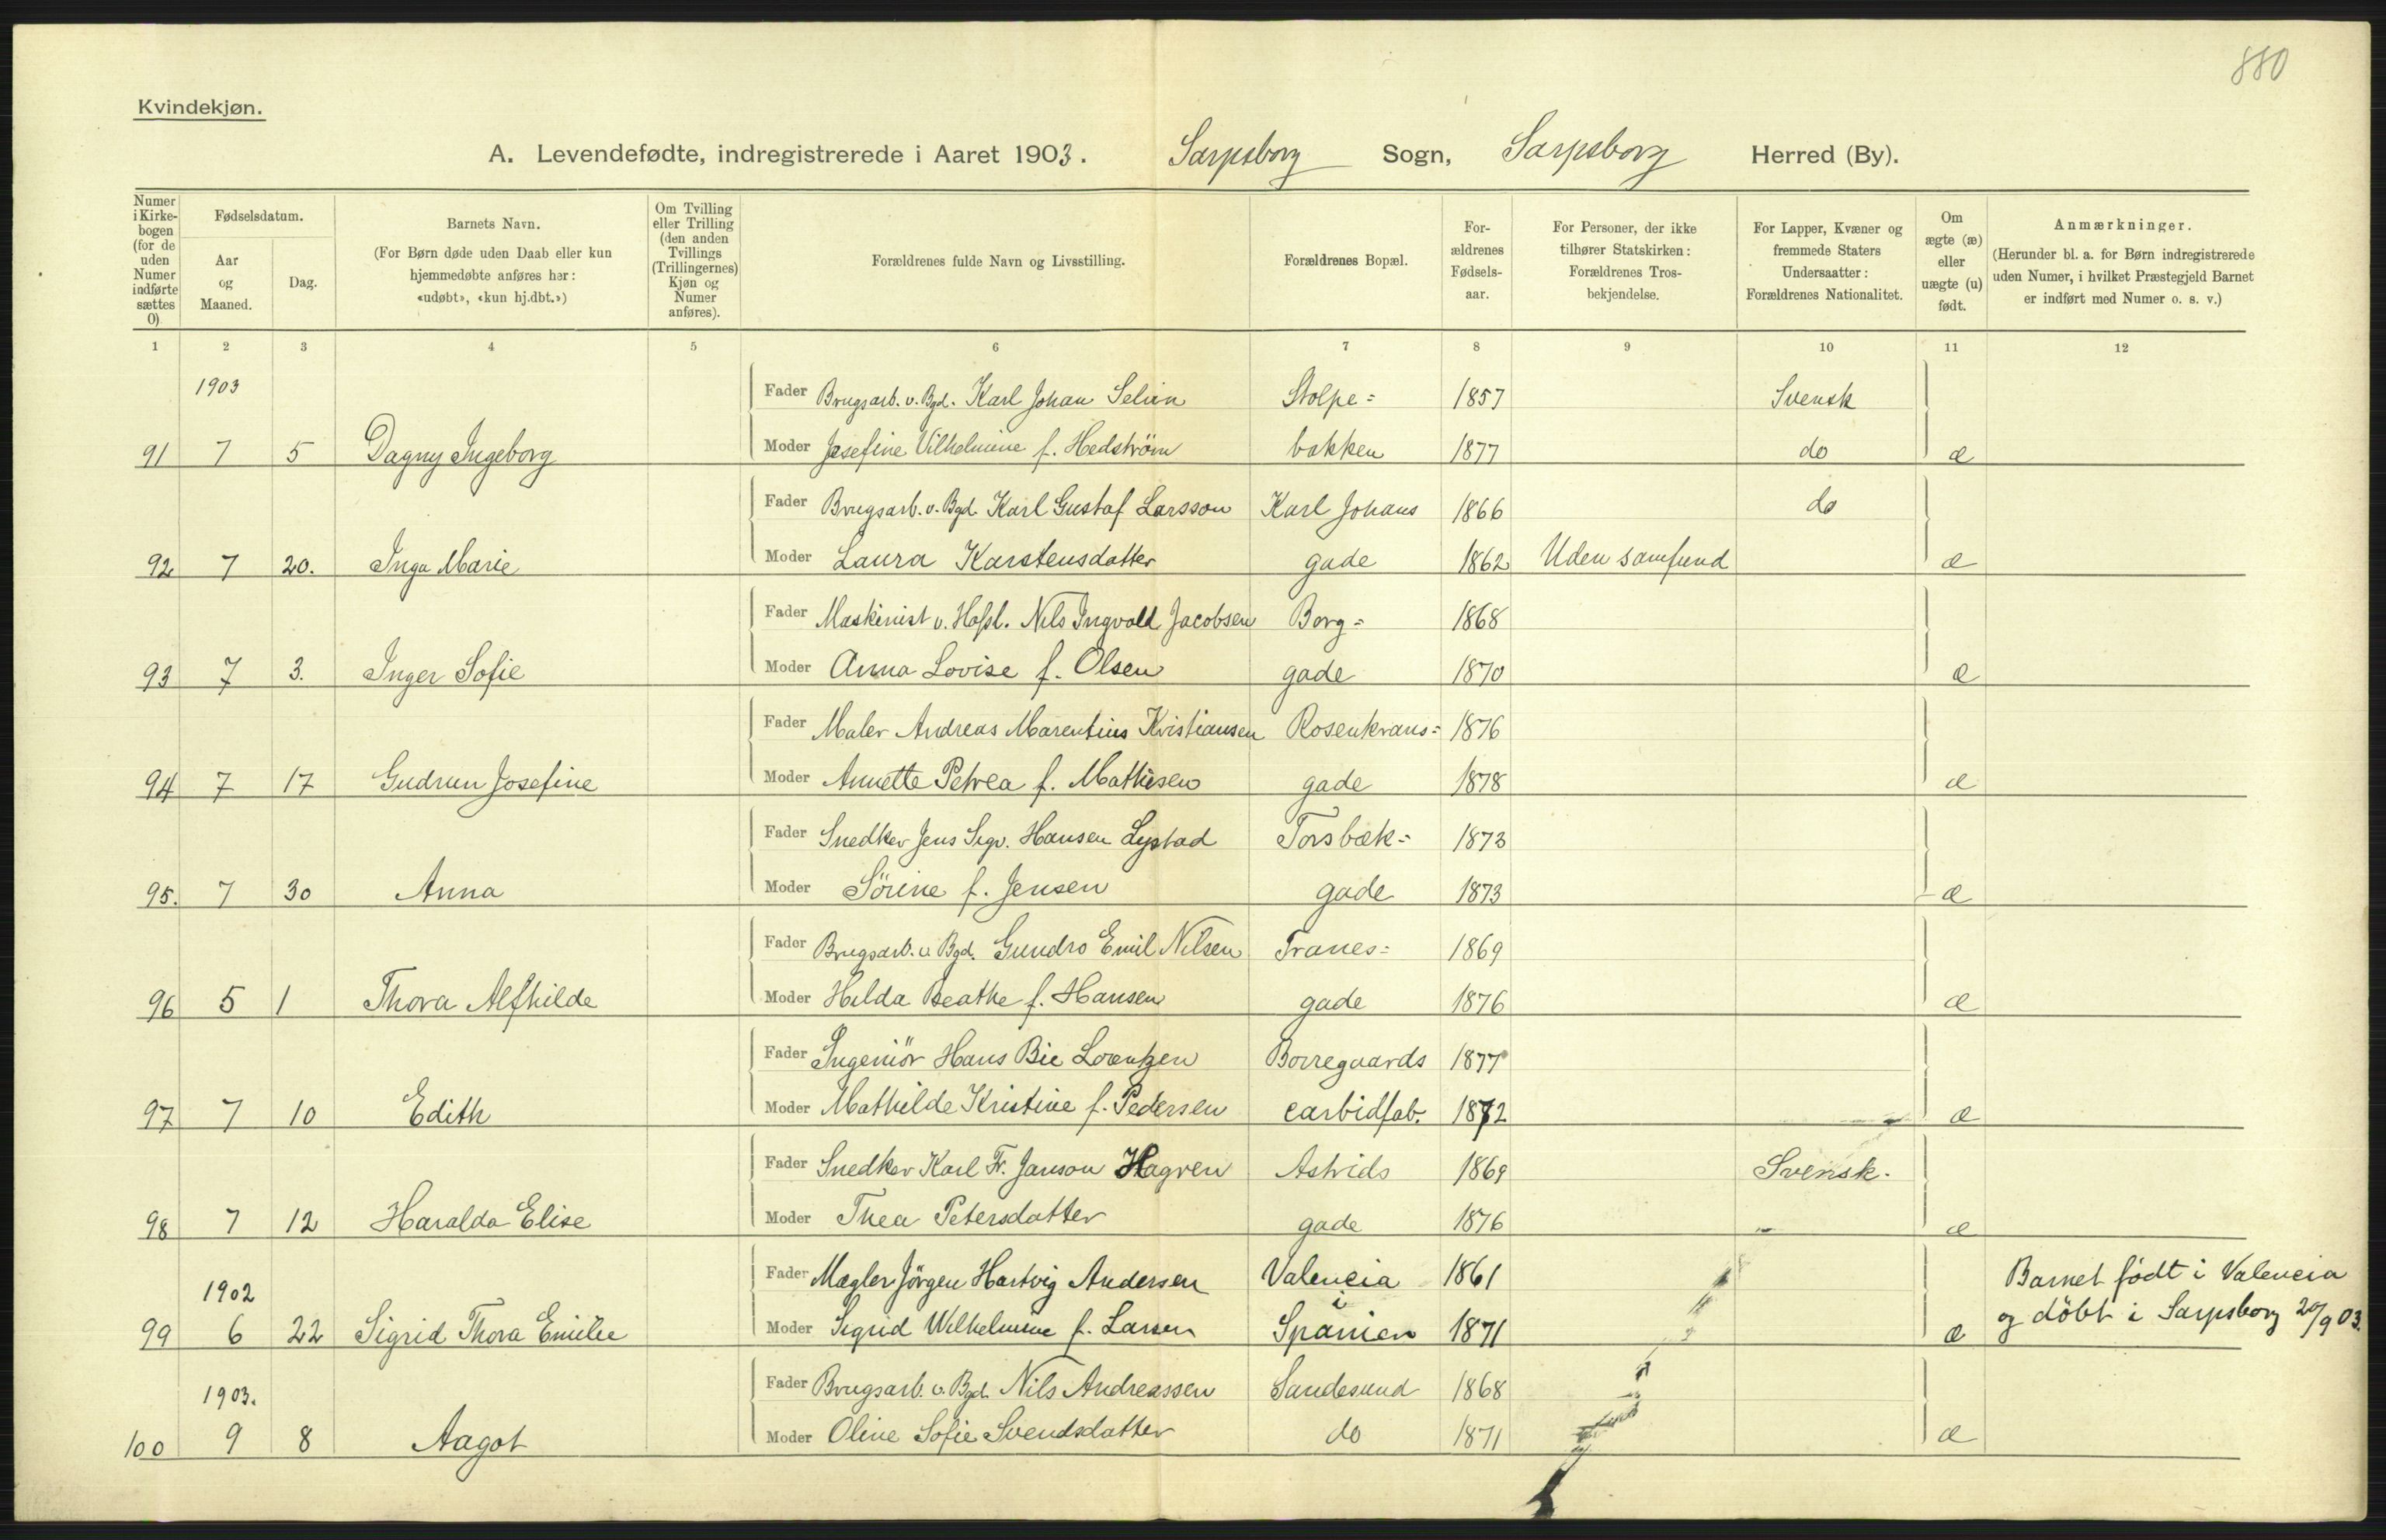 880
Kvindekjøn.
A. Levendefødte, indregistrerede i Aaret 1903. Sarpsborg Sogn, Sarpsborg Herred (By).
Numer i Kirke-bogen (for de uden Numer indførte sættes 0)
Fødselsdatum.
Aar og Maaned.
Dag.
Barnets Navn.
(For Børn døde uden Daab eller kun hjemmedøbte anføres her: «udøbt», «kun hj.dbt.»)
Om Tvilling eller Trilling (den anden Tvillings (Trillingernes) Kjøn og Numer anføres).
Forældrenes fulde Navn og Livsstilling.
Forældrenes Bopæl.
For-ældrenes Fødsels-aar.
For Personer, der ikke tilhører Statskirken: Forældrenes Tros-bekjendelse.
For Lapper, Kvæner og fremmede Staters Undersaatter: Forældrenes Nationalitet.
Om ægte (æ) eller uægte (u) født.
Anmærkninger.
(Herunder bl. a. for Børn indregistrerede uden Numer, i hvilket Præstegjeld Barnet er indført med Numer o. s. v.)
1 2 3 4 5 6 7 8 9 10 11 12
1903 Fader Brugsarb. v. Bgd. Karl Johan Selin Stolpe= 1857 Svensk
91 7 5 Dagny Ingeborg Moder Josefine Vilhelmine f. Hedström bakken 1877 do æ
Fader Brugsarb. v. Bgd. Karl Gustaf Larsson Karl Johans 1866 do
92 7 20. Inga Marie Moder Laura Karstensdatter gade 1862 Uden samfund æ
Fader Maskinist v. Hafsl. Nils Ingvald Jacobsen Borg= 1868
93 7 3. Inger Sofie Moder Anna Lovise f. Olsen gade 1870 æ
Fader Maler Andreas Marentius Kristiansen Rosenkrans= 1876
94 7 17 Gudrun Josefine Moder Annette Petrea f. Mathisen gade 1878 æ
Fader Snedker Jens Sigv. Hansen Lystad Torsbæk= 1873
95. 7 30 Anna Moder Sörine f. Jensen gade 1873 æ
Fader Brugsarb. v. Bgd. Gundro Emil Nilsen Tranes= 1869
96 5 1 Thora Alfhilde Moder Hilda Beathe f. Hansen gade 1876 æ
Fader Ingeniör Hans Bie Lorentzen Borregaards 1877
97 7 10 Edith Moder Mathilde Kristine f. Pedersen carbidfab. 1872 æ
Fader Snedker Karl Fr. Janson Hagren Astrids 1869 Svensk.
98 7 12 Haralda Elise Moder Thea Petersdatter gade 1876 æ
1902 Fader Mægler Jörgen Hartvig Andersen Valencia 1861 Barnet födt i Valencia
i
99 6 22 Sigrid Thora Emilie Moder Sigrid Wilhelmine f. Larsen Spanien 1871 æ og döbt i Sarpsborg 20/9 03.
1903. Fader Brugsarb. v. Bgd. Nils Andreassen Sandesund 1868
100 9 8 Aagot Moder Oline Sofie Svendsdatter do 1871 æ